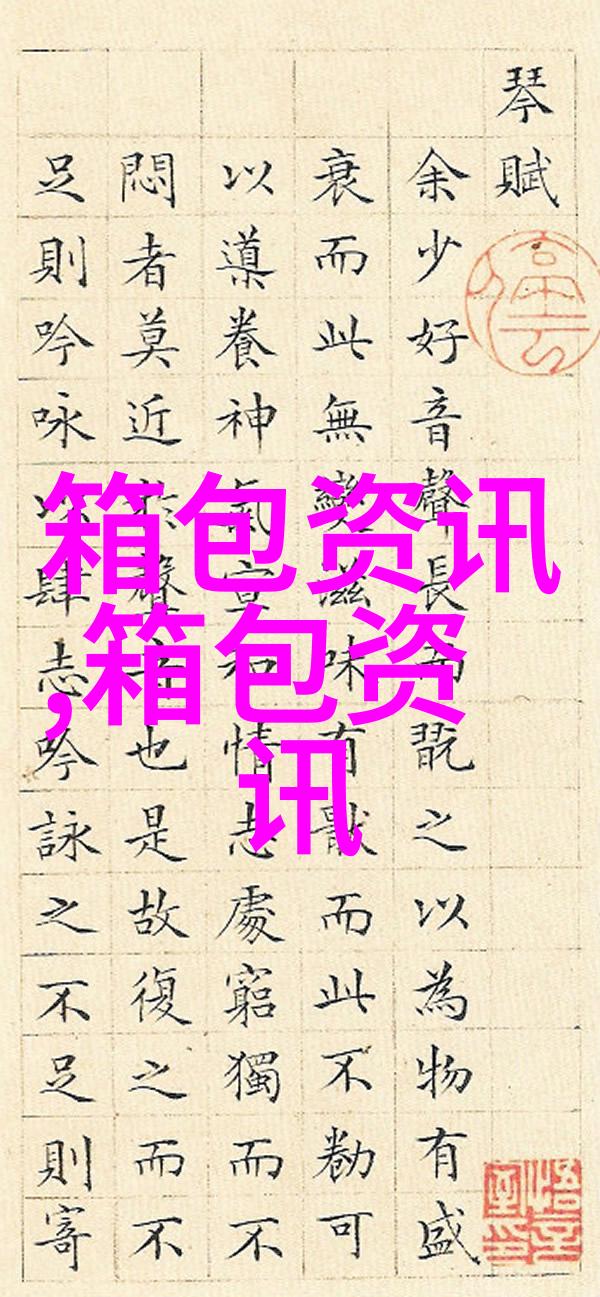 琴賦
余少好音聲長而翫之以為物有盛
衰而此無變滋味有猒而此不勌可
以導養神氣宣和情志處窮獨而不
悶者莫近於聲音也是故復之而不
足則吟咏以肆志吟詠之不足則寄
箱包资讯
,箱包资
讯